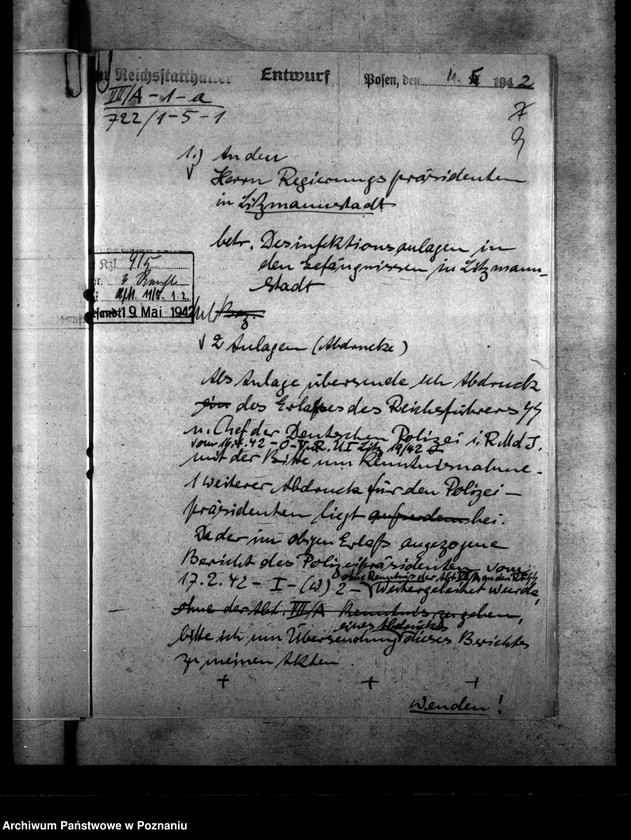 der Reichsstatthalter Entwurf Posen, den 11. 5. 1942
VII/A-1-a
722/1-5-1
1.) An den
Herrn Regierungspräsidenten
in Litzmannstadt
betr. Desinfektionsanlagen in
den Gefängnissen in Litzmann-
stadt
Kzl. 9/5
11/5. 1.2.
gesandt 19 Mai 1942
2 Anlagen (Abdrucke)
Als Anlage übersende ich Abdruck
des Erlasses des Reichsführers SS
u. Chef der Deutschen Polizei i. R.M.d.J.
vom 42-O-
19/42
mit der Bitte um Kenntnisnahme.
1 weiterer Abdruck für den Polizei-
präsidenten liegt bei.
Da der im obigen Erlaß angezogene
Bericht des Polizeipräsidenten vom
17.2.42-I-(W) 2- ohne Kenntnis der Abt. VII/A an den RF SS
weitergeleitet wurde,
ohne der Abt. VII/A Kenntnis zu geben,
bitte ich um Übersendung eines Abdrucks dieses Berichtes
zu meinen Akten.
+ + +
Wenden!
Archiwum Państwowe w Poznaniu